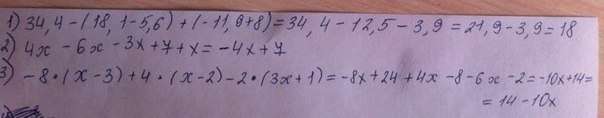 1) 34,4-(18,1-5,6)+(-11,9+8)=34,4-12,5-3,9=21,9-3,9=18
2) 4x-6x-3x+7+x=-4x+7
3) -8·(x-3)+4·(x-2)-2·(3x+1)=-8x+24+4x-8-6x-2=-10x+14=
=14-10x